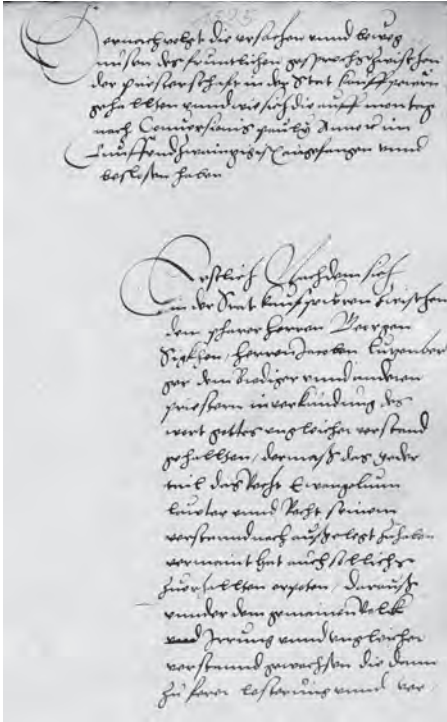 1525
Hernachvolgt die ursachen unnd beweg
nussen des freuntlichen gesprechs zwischen
der priesterschafft in der Stat kauffpeurn
gehallten unnd wie sich die auff montag
nach Conversionis pauly Anno im
funffundzwaintzigisten angefangen unnd
beslossen haben
Erstlich Nachdem sich
in der Stat kauffpeuren zwischen
dem pharer herren Georgen
Sigkhen, herren Jacoben Lutzenber
ger dem Prediger unnd anderen
priestern in verkundung des
wort gottes ungleicher verstand
gehallten, dermass das yeder
tail das Recht Ewangelium
lauter unnd Recht seinem
verstannd nach aussgelegt zuhaben
vermaint hat auch sollichs
zuerhallten erpoten, darauss
unnder dem gemainen Volk
Irrung unnd ungleicher
verstannd gewachsen die dann
zu lesterung unnd ver-